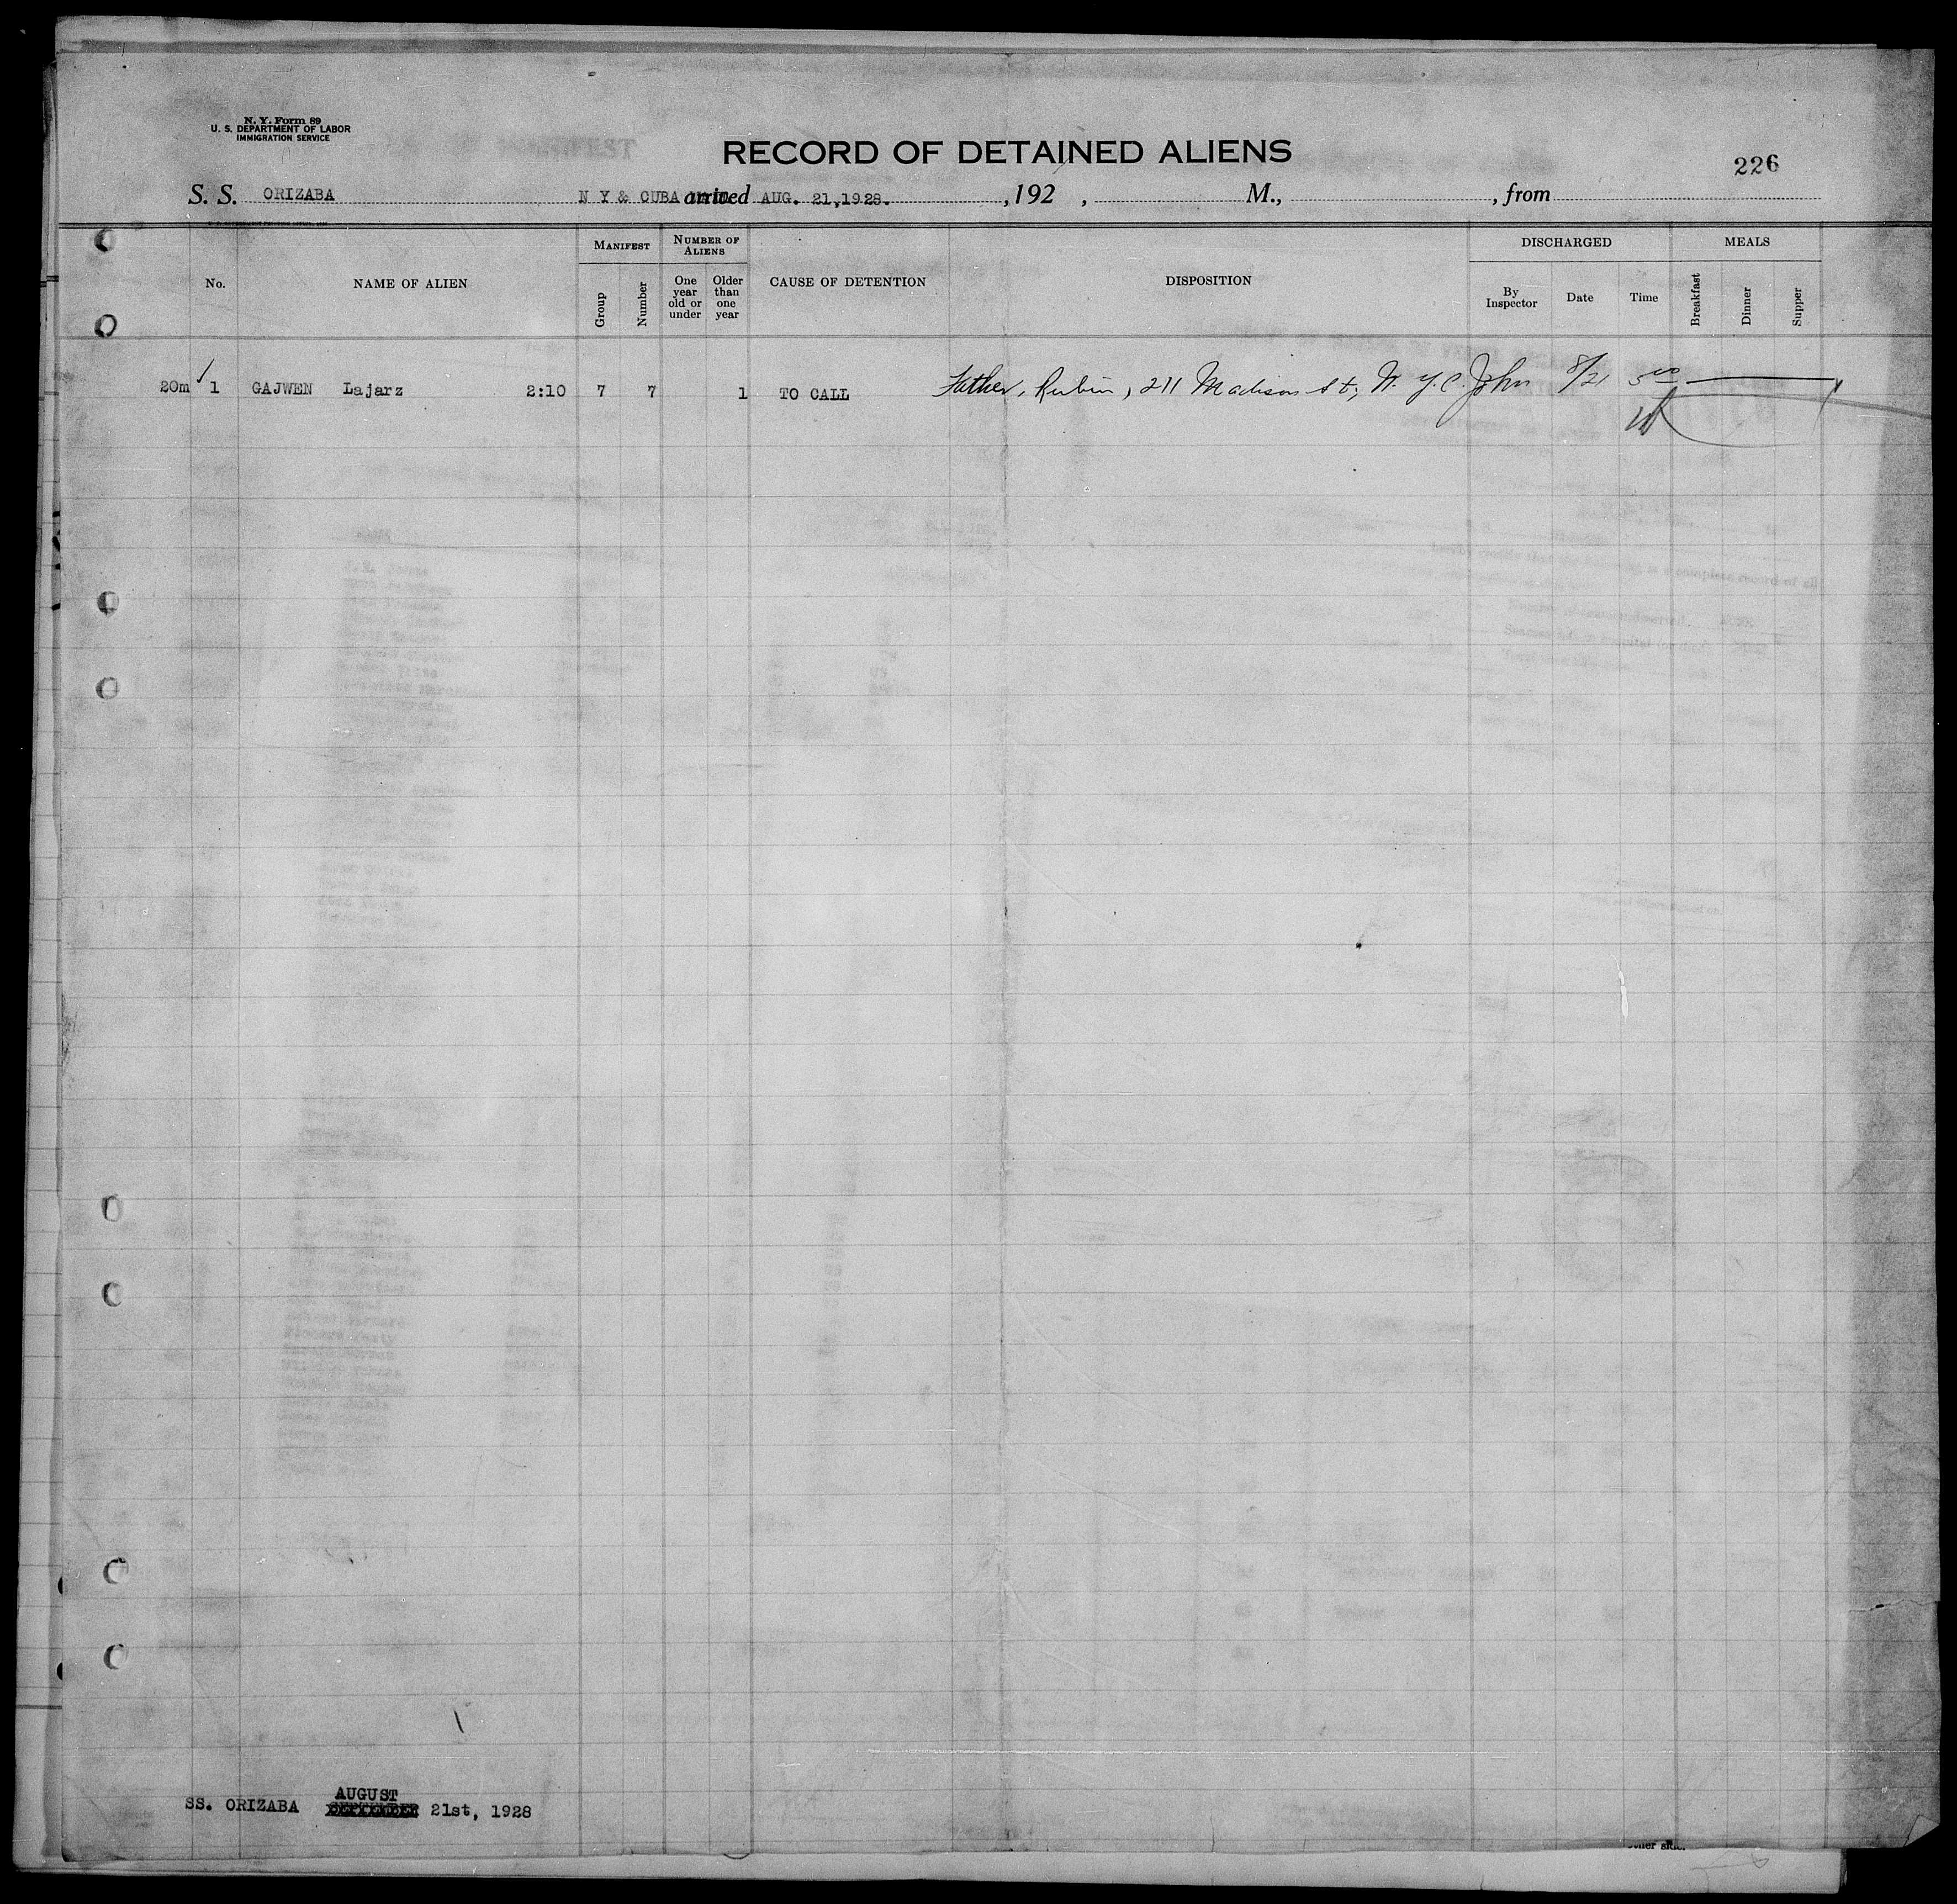 N. Y. Form 89
U. S. DEPARTMENT OF LABOR
IMMIGRATION SERVICE
RECORD OF DETAINED ALIENS
226
S. S. ORIZABA N Y & CUBA arrived AUG. 21,1928. , 192 , M., , from
No. NAME OF ALIEN MANIFEST Group Number NUMBER OF ALIENS One year old or under Older than one year CAUSE OF DETENTION DISPOSITION DISCHARGED By Inspector Date Time MEALS Breakfast Dinner Supper
20m ✓ 1 GAJWEN Lajarz 2:10 7 7 1 TO CALL Father, Rubin, 211 Madison St, N. Y. C. John 8/21 5 00
SS. ORIZABA AUGUST SEPTEMBER 21st, 1928
other side.